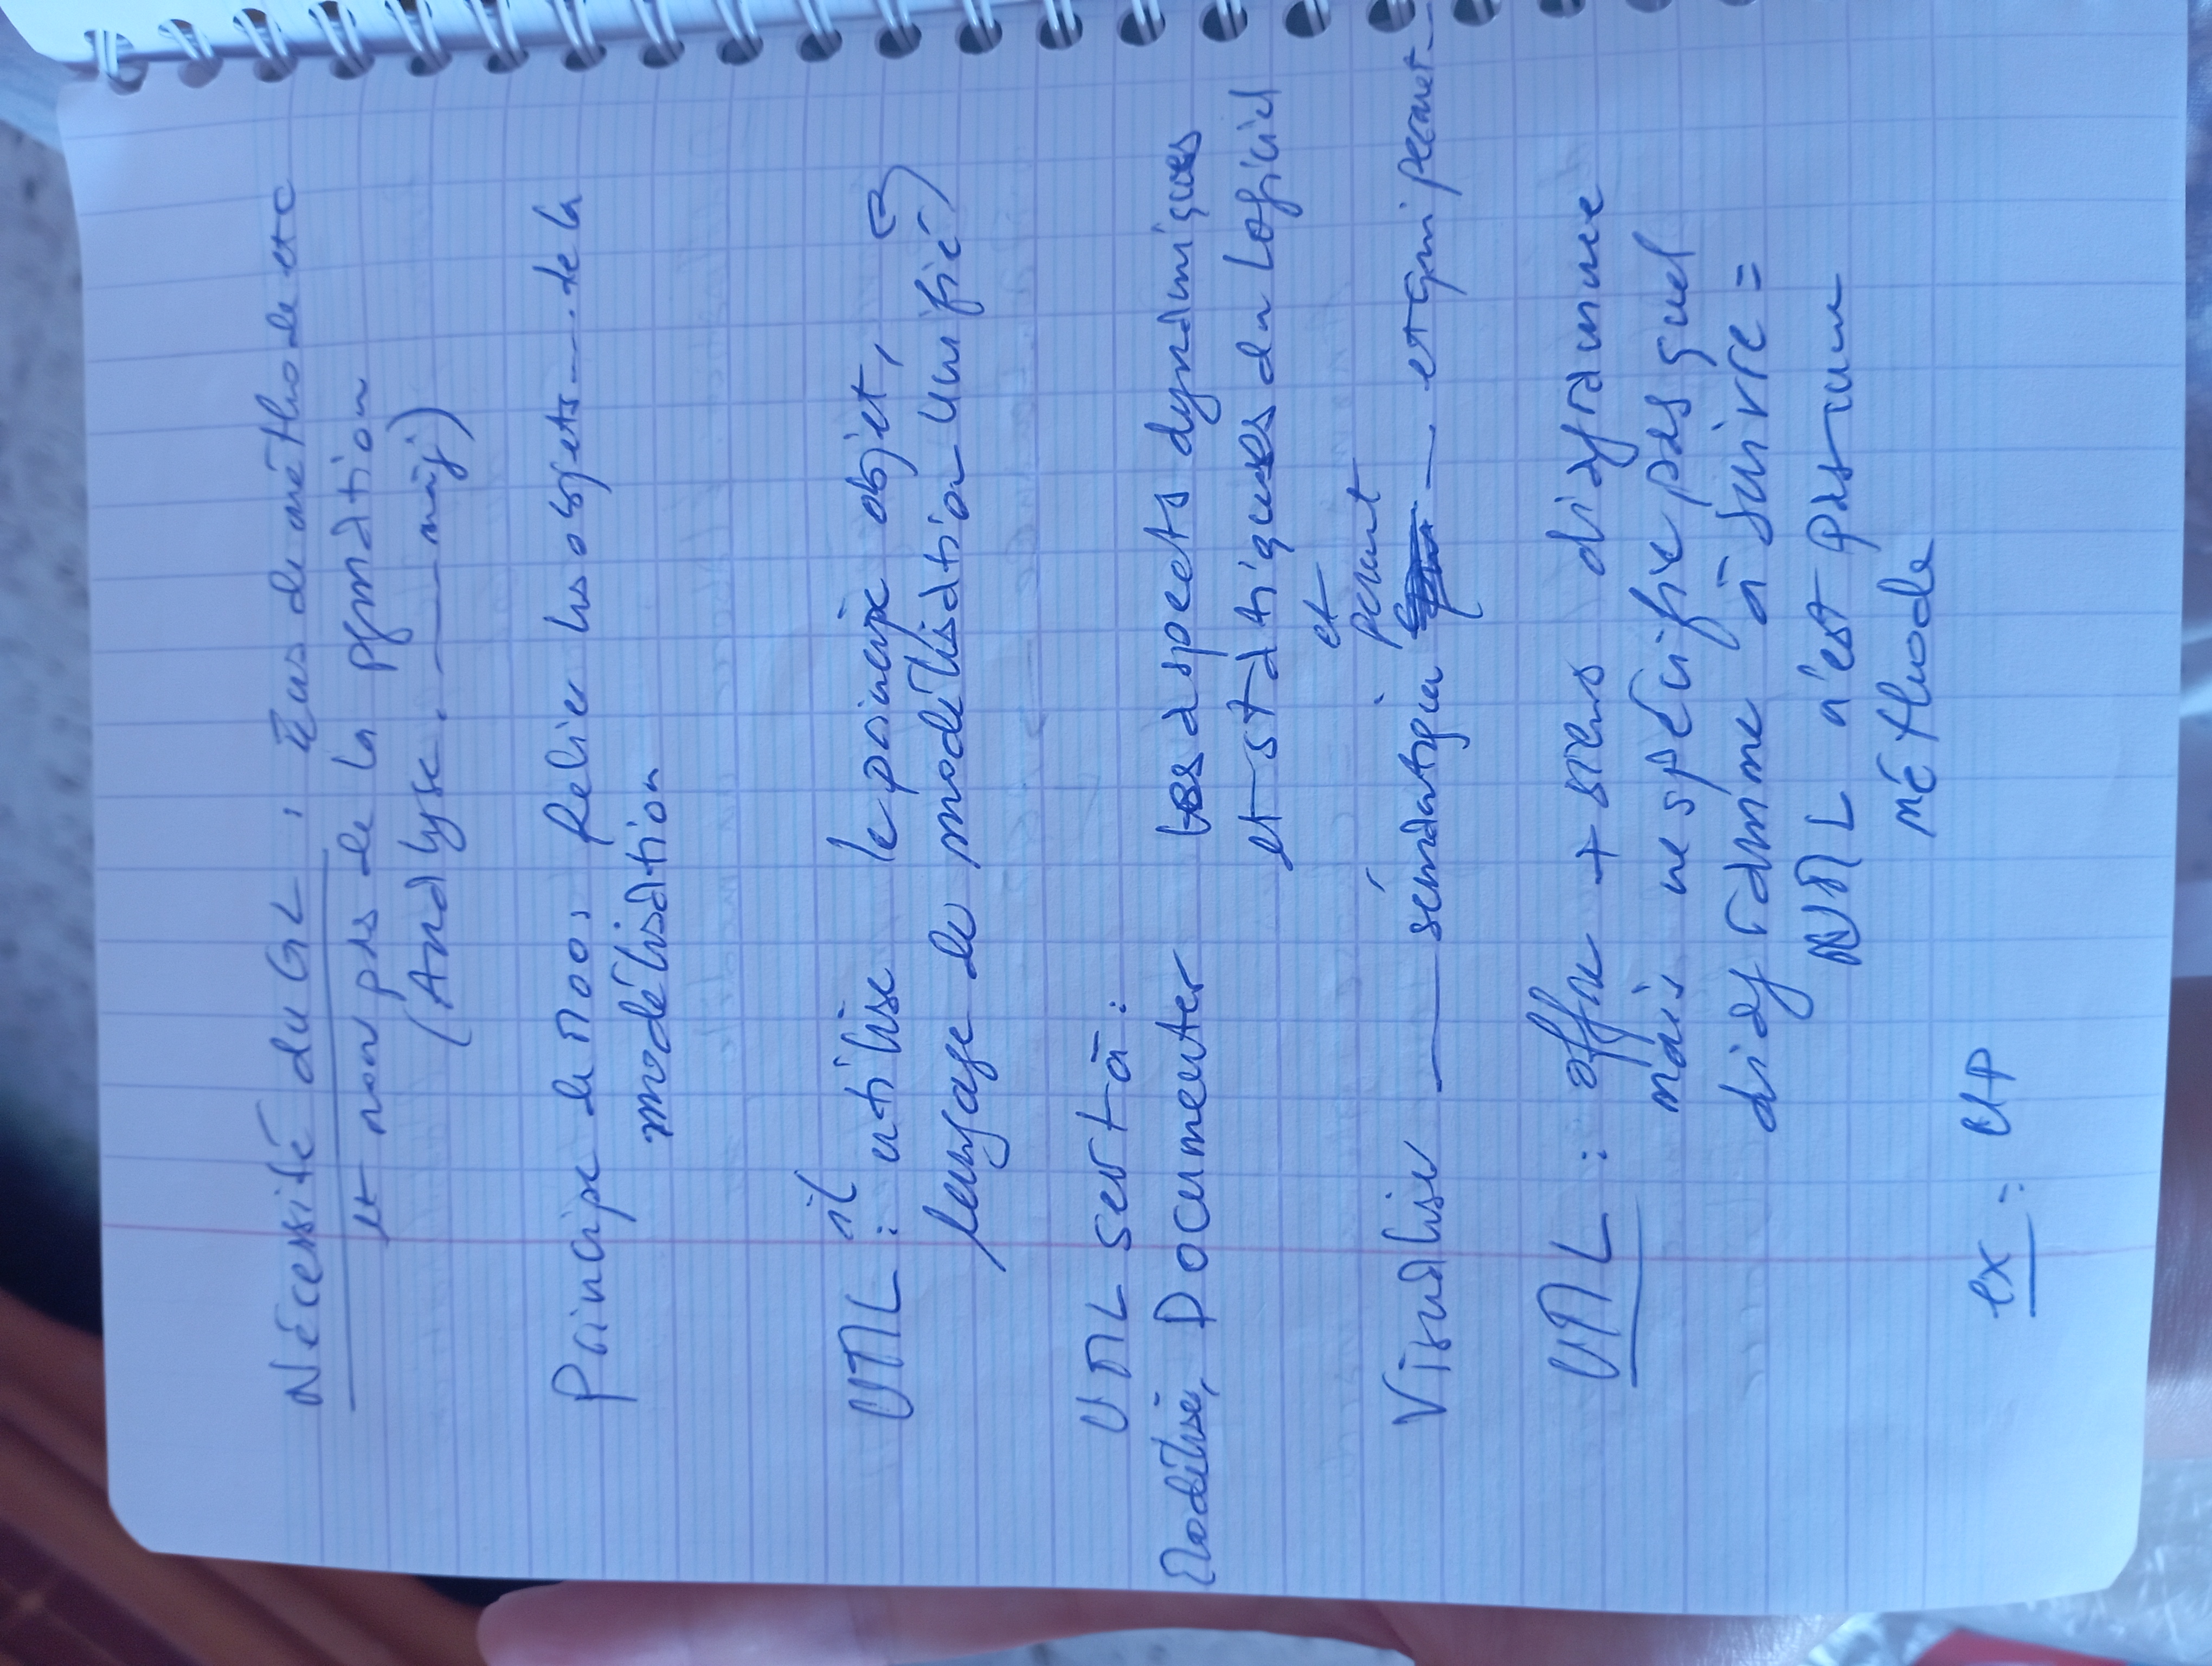 Nécessité du GL : Eus de méthode etc
et non pas de la pgmation
(Analyse. ___ màj)
Principe de MOO, Relier les objets ... de la
modélisation
il
UML : utilise le principe objet,
language de modélisation Unifié)
UML sert à :
Modéliser, Documenter les aspects dynamiques
et statiques du logiciel
et
permet
Visualiser ___ sémantique ___ et qui permet
UML : offre + sieurs diagramme
mais ne spécifie pas quel
diagramme à suivre =
UML n'est pas une
méthode
ex : UP